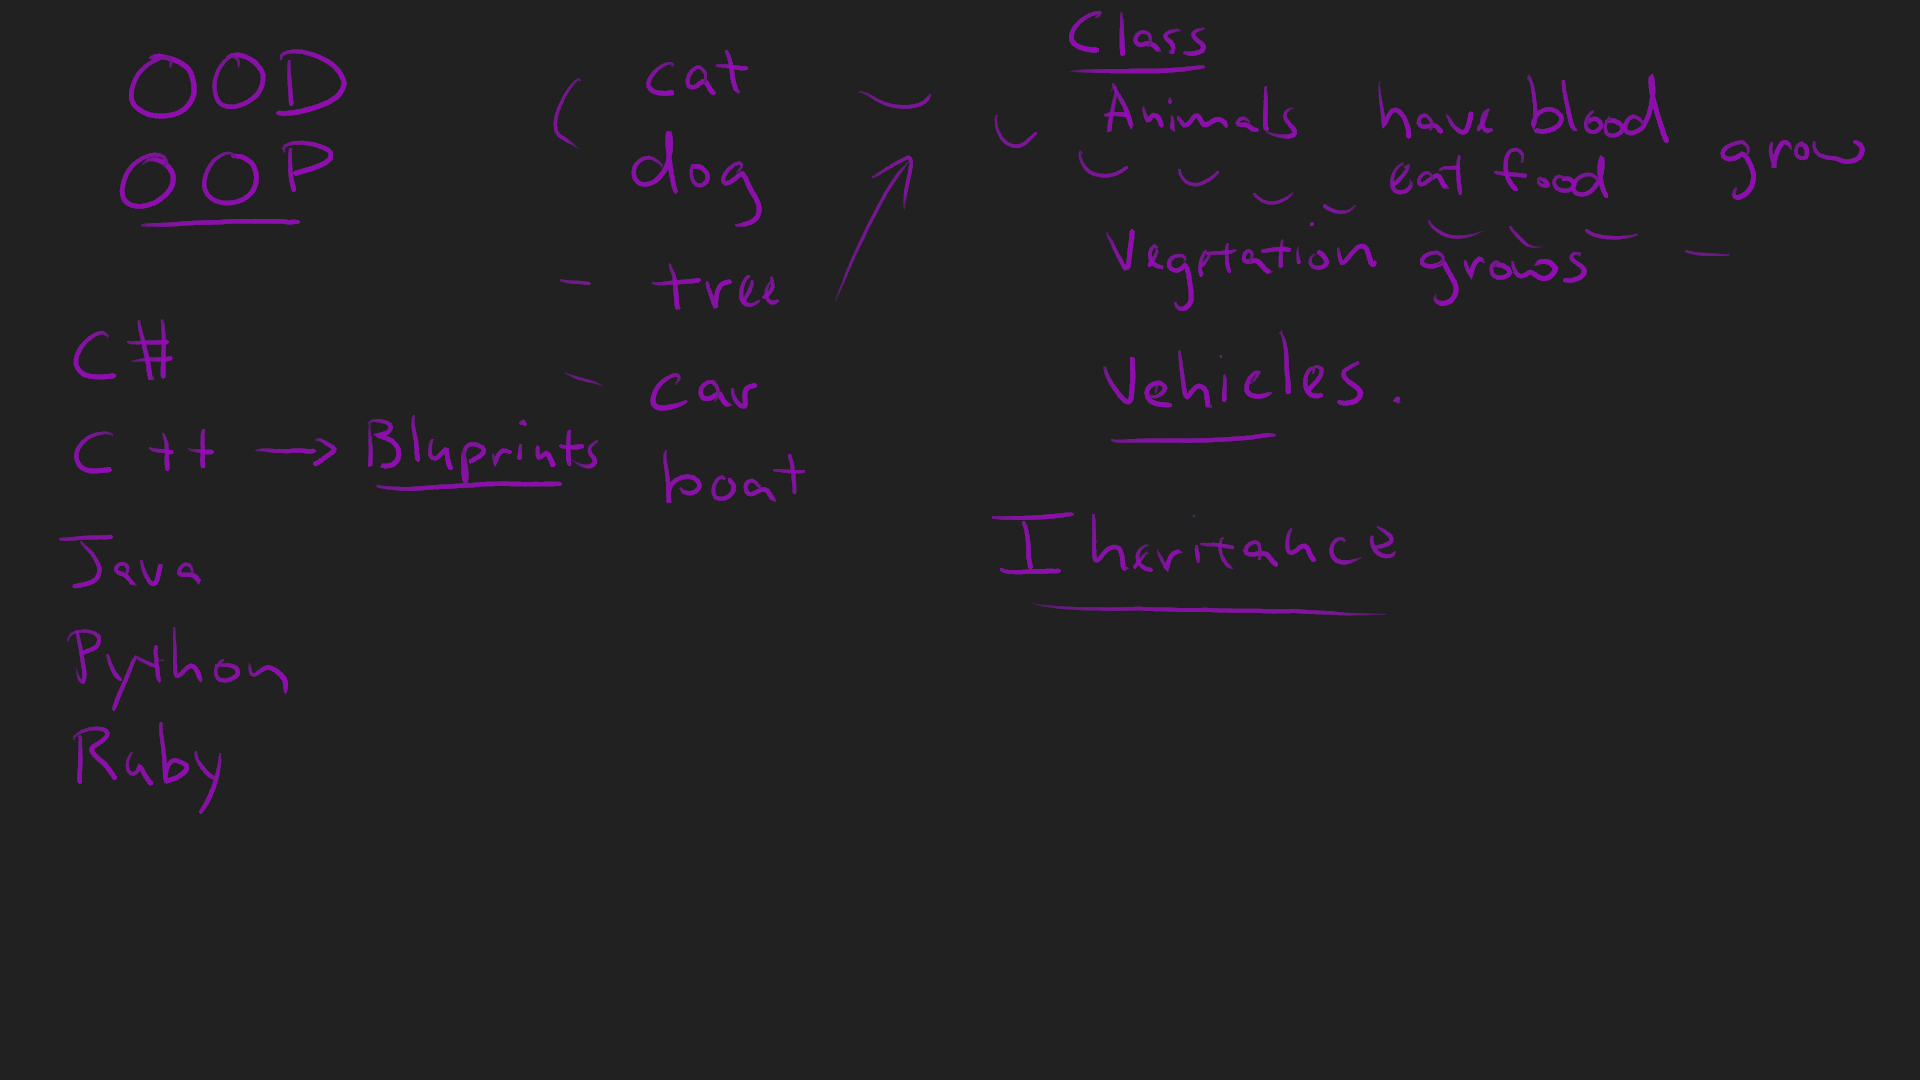 OOD
OOP
C#
C++ → Bluprints
Java
Python
Ruby
cat
dog
tree
car
boat
Class
Animals have blood
eat food grow
Vegetation grows
Vehicles.
Iheritance